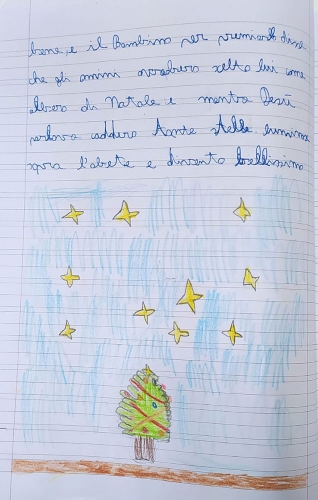 bene, e il Bambino per premiarlo disse
che gli omini avrebbero scelto lui come
albero di Natale e mentre Gesù
parlava caddero tante stelle luminose
sopra l'abete e diventò bellissimo